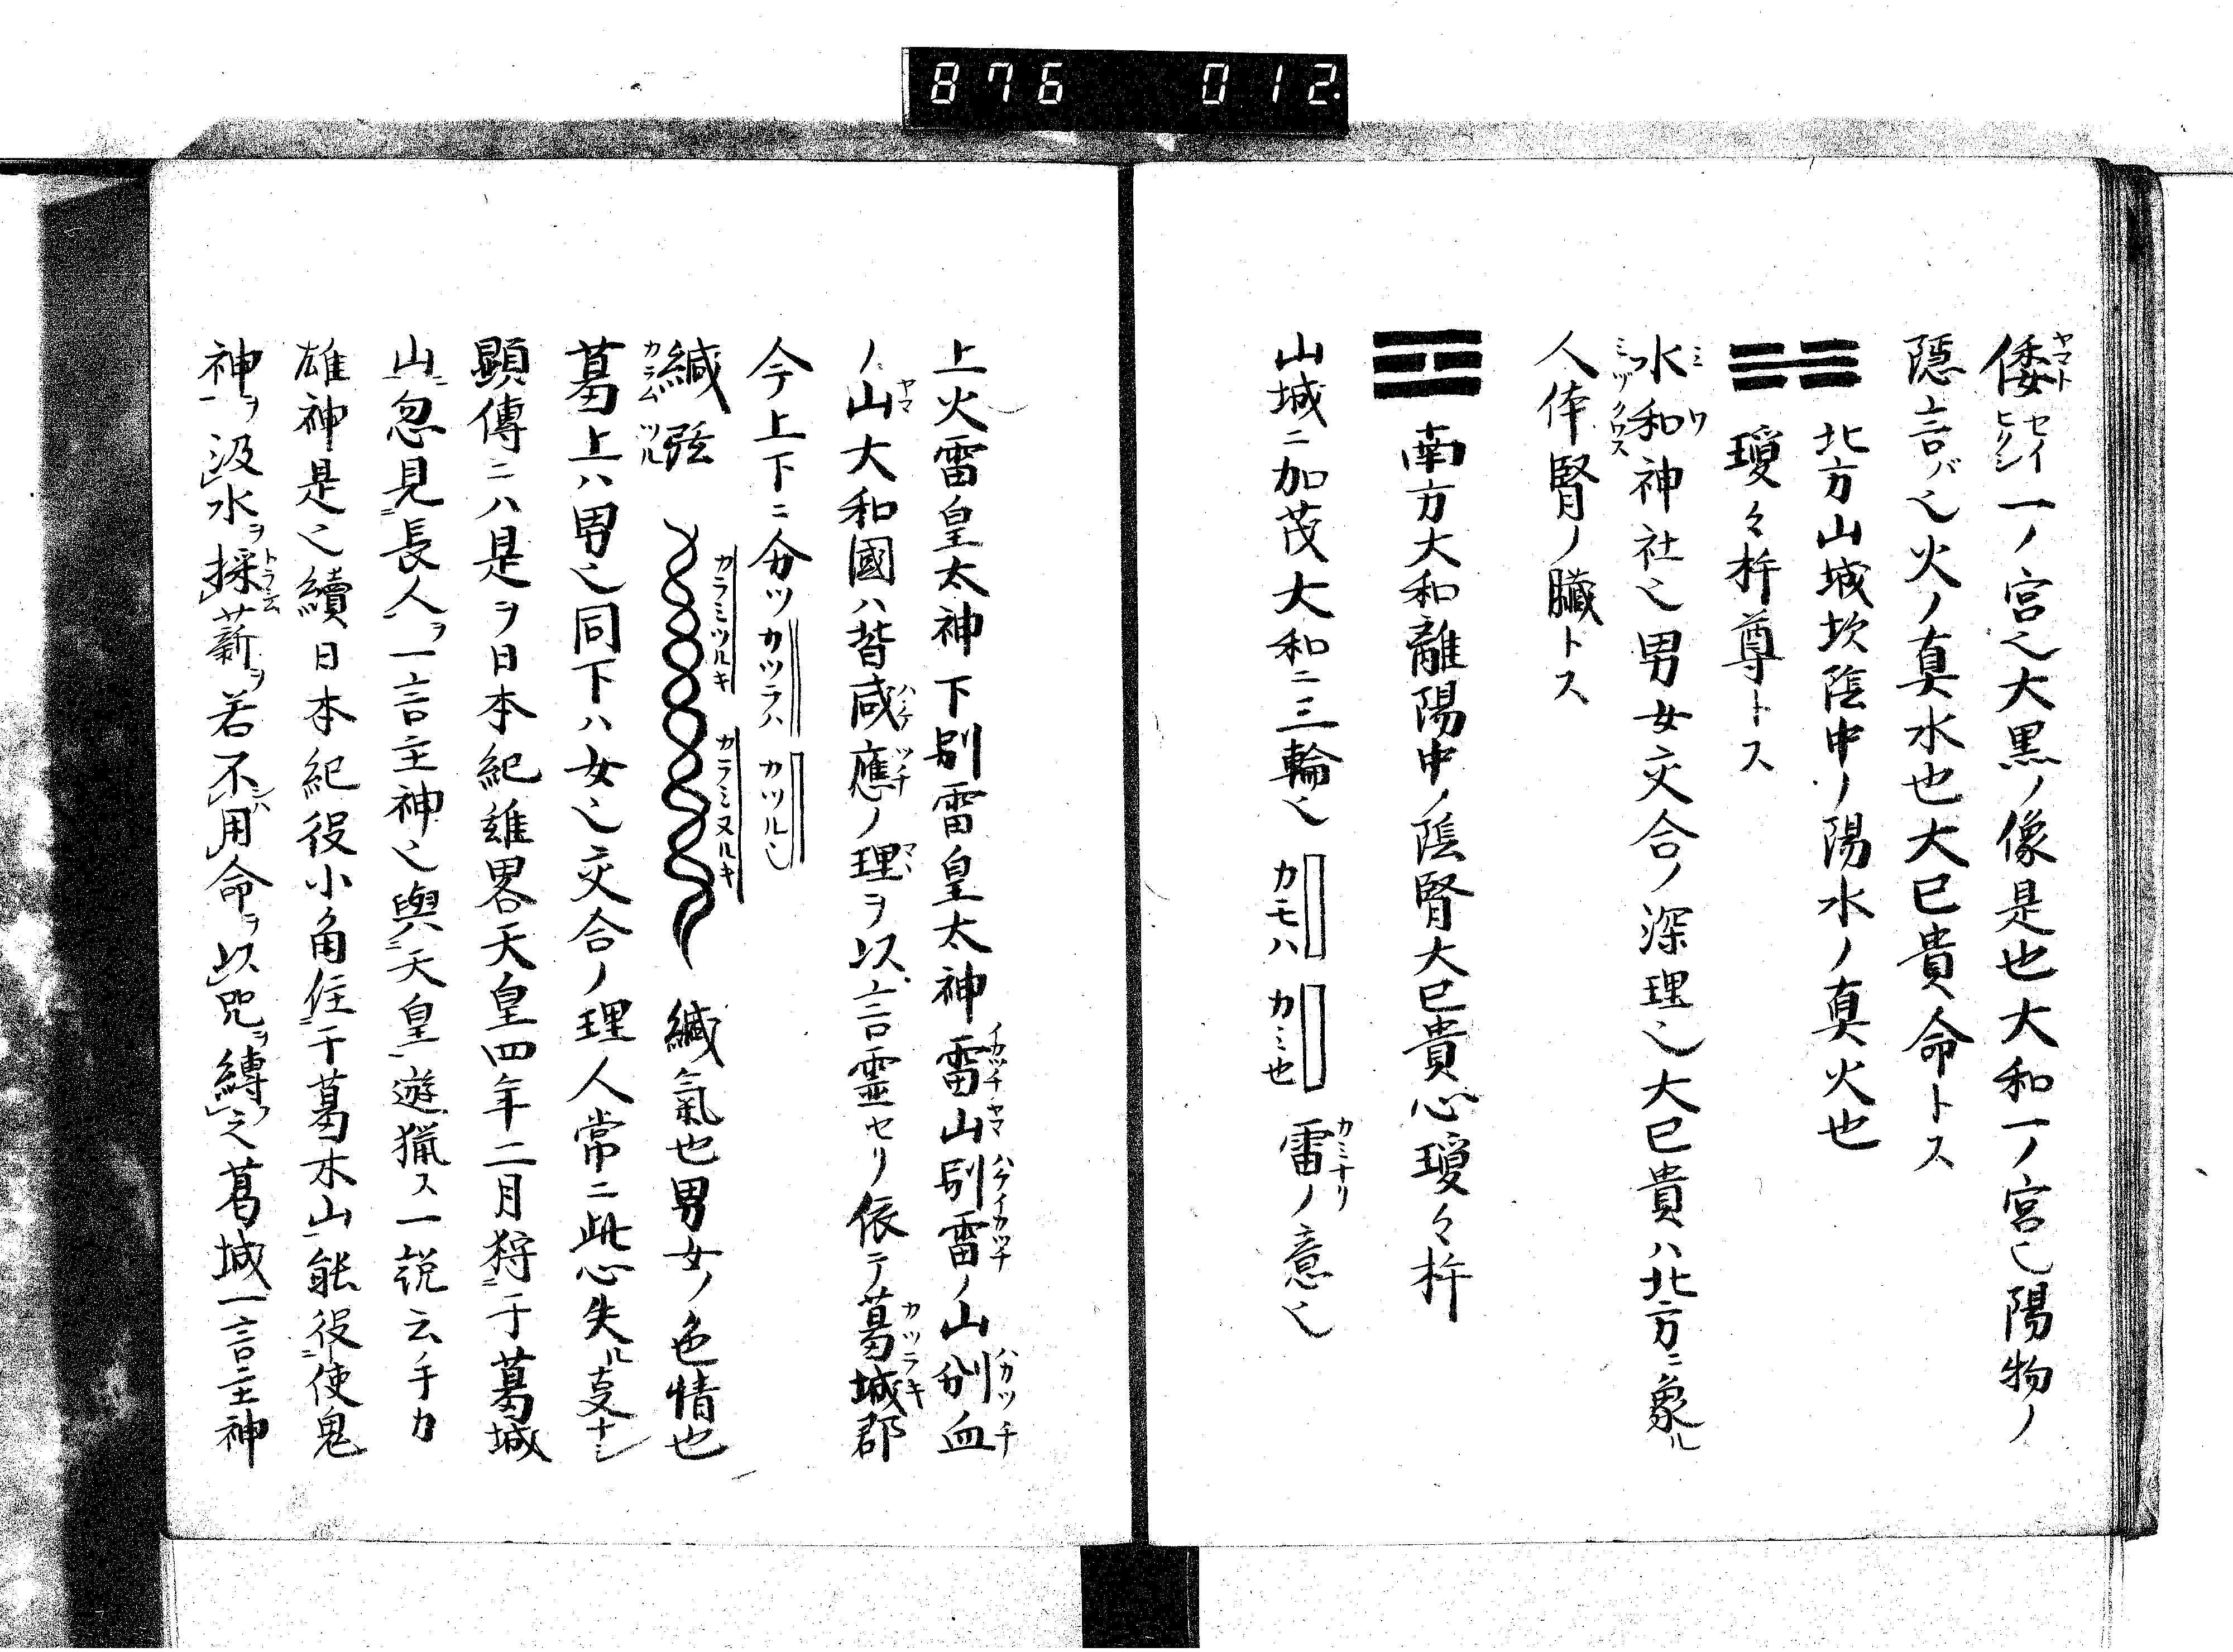 876 012
倭一ノ宮也大黒ノ像是也大和一ノ宮也陽物ノ
隠言バ也火ノ真水也大巳貴命トス
☵ 北方山城坎陰中ノ陽水ノ真火也
瓊々杵尊トス
水和神社也男女交合ノ深理也大巳貴ハ北方ニ象ル
人体腎ノ臓トス
☲ 南方大和離陽中ノ陰腎大巳貴心瓊々杵
山城ニ加茂大和ニ三輪也 カモハ カミ也 雷ノ意也
上火雷皇太神下別雷皇太神雷山別雷ノ山別血
ノ山大和國ハ皆咸應ノ理ヲ以言霊セリ依テ葛城郡
今上下ニ分ツカツラハ カツル也
緘弦 カラミツルキ カラミヌルキ 緘氣也男女ノ色情也
葛上ハ男也同下ハ女也交合ノ理人常ニ此心失ル支ナシ
顕傳ニハ是ヲ日本紀雄畧天皇四年二月狩于葛城
山忽見長人ヲ一言主神也與天皇遊猟ス一説云手力
雄神是也續日本紀役小角住于葛木山能役使鬼
神ヲ汲水ヲ採薪ヲ若不用命ヲ以咒ヲ縛之葛城一言主神